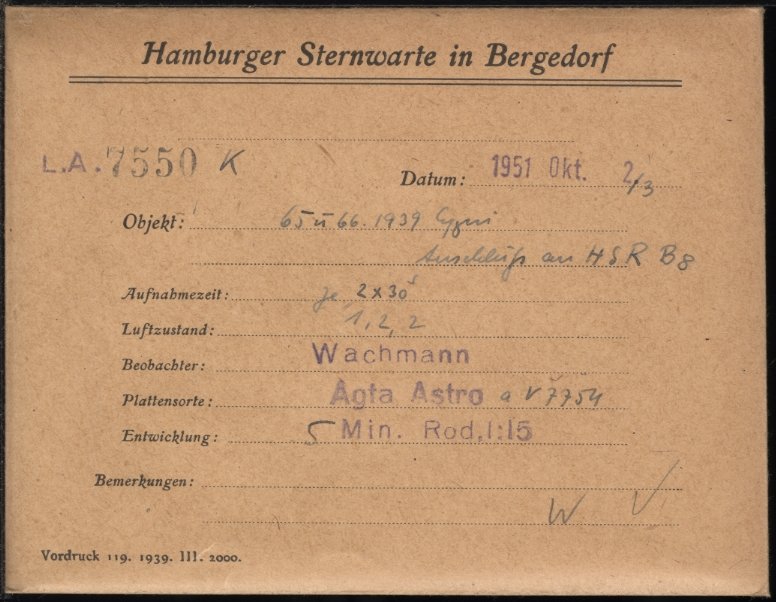 Hamburger Sternwarte in Bergedorf
L.A. 7550 K
Datum: 1951 Okt. 2/3
Objekt: 65 u 66. 1939 Cygni
Anschluß an HSR B8
Aufnahmezeit: je 2x30
Luftzustand: 1, 2, 2
Beobachter: Wachmann
Plattensorte: Agfa Astro a V 7754
Entwicklung: 5 Min. Rod. 1:15
Bemerkungen:
W
Vordruck 119. 1939. III. 2000.